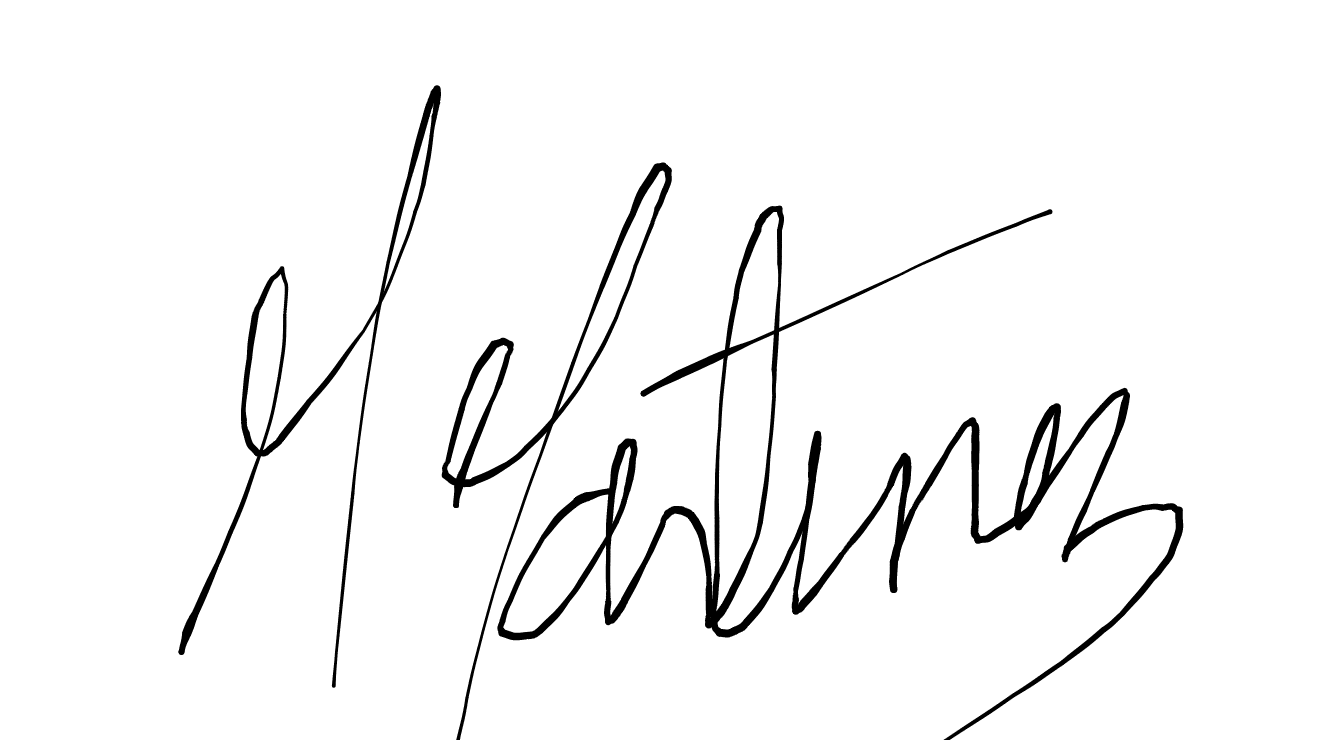 M Martinez